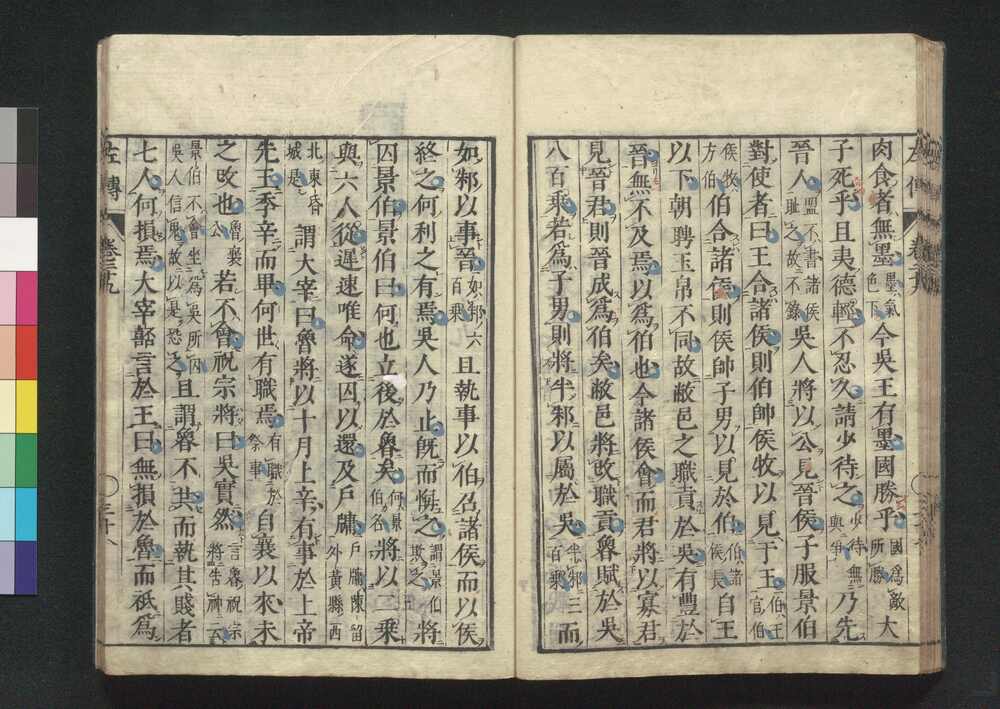 肉食者無墨墨氣色下今吳王有墨國勝乎國為敵所勝大
子死乎且夷德輕不忍久請少待之少待無與爭乃先
晉人盟不書諸侯恥之故不錄吳人將以公見晉侯子服景伯
對使者曰王合諸侯則伯帥侯牧以見于王伯王官伯
侯牧方伯伯合諸侯則侯帥子男以見於伯伯諸侯長自王
以下朝聘玉帛不同故敝邑之職貢於吳有豐於
晉無不及焉以爲伯也今諸侯會而君將以寡君
見晉君則晉成爲伯矣敝邑將改職貢魯賦於吳
八百乘若爲子男則將半邾以屬於吳半邾三百乘而
如邾以事晉如邾六百乘且執事以伯召諸侯而以侯
終之何利之有焉吳人乃止既而悔之謂景伯欺之將
囚景伯景伯曰何也立後於魯矣何景伯名將以二乘
與六人從遲速唯命遂囚以還及戶牖戶牖陳留外黃縣西
北東昏城是謂大宰曰魯將以十月上辛有事於上帝
先王季辛而畢何世有職焉有職於祭事自襄以來未
之改也魯襄公若不會祝宗將曰吳實然言魯祝宗將告神云
景伯不會坐爲吳所囚吳人信鬼故以是恐之且謂魯不共而執其賤者
七人何損焉大宰嚭言於王曰無損於魯而祇爲
左傳 卷二十九